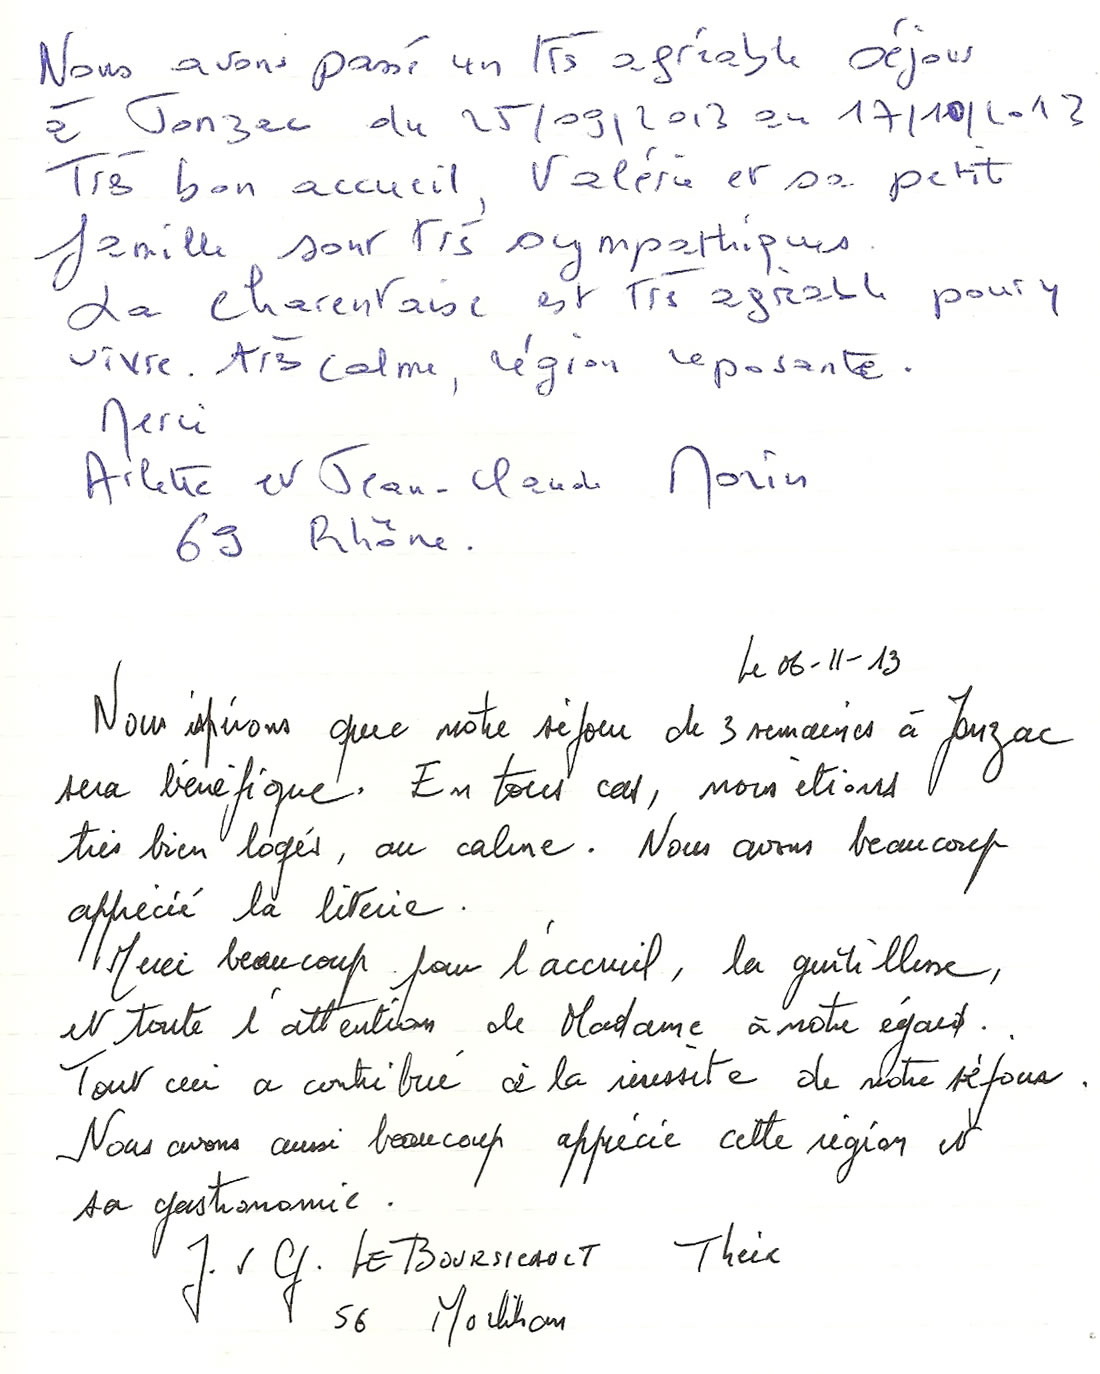 Nous avons passé un très agréable séjour
à Jonzac du 25/09/2013 au 17/10/2013
Très bon accueil, Valérie et sa petit
famille sont très sympathiques.
La Charentaise est très agréable pour y
vivre. très calme, région reposante.
Merci
Arlette et Jean-Claude Morin
69 Rhône.
Le 06-11-13
Nous espérons que notre séjour de 3 semaines à Jonzac
sera bénéfique. En tous cas, nous étions
très bien logés, au calme. Nous avons beaucoup
apprécié la literie.
Merci beaucoup pour l'accueil, la gentillesse,
et toute l'attention de Madame à notre égard.
Tout ceci a contribué à la réussite de notre séjour.
Nous avons aussi beaucoup apprécié cette région et
sa gastronomie.
J. et G. LE BOURSICAULT Theix
56 Morbihan